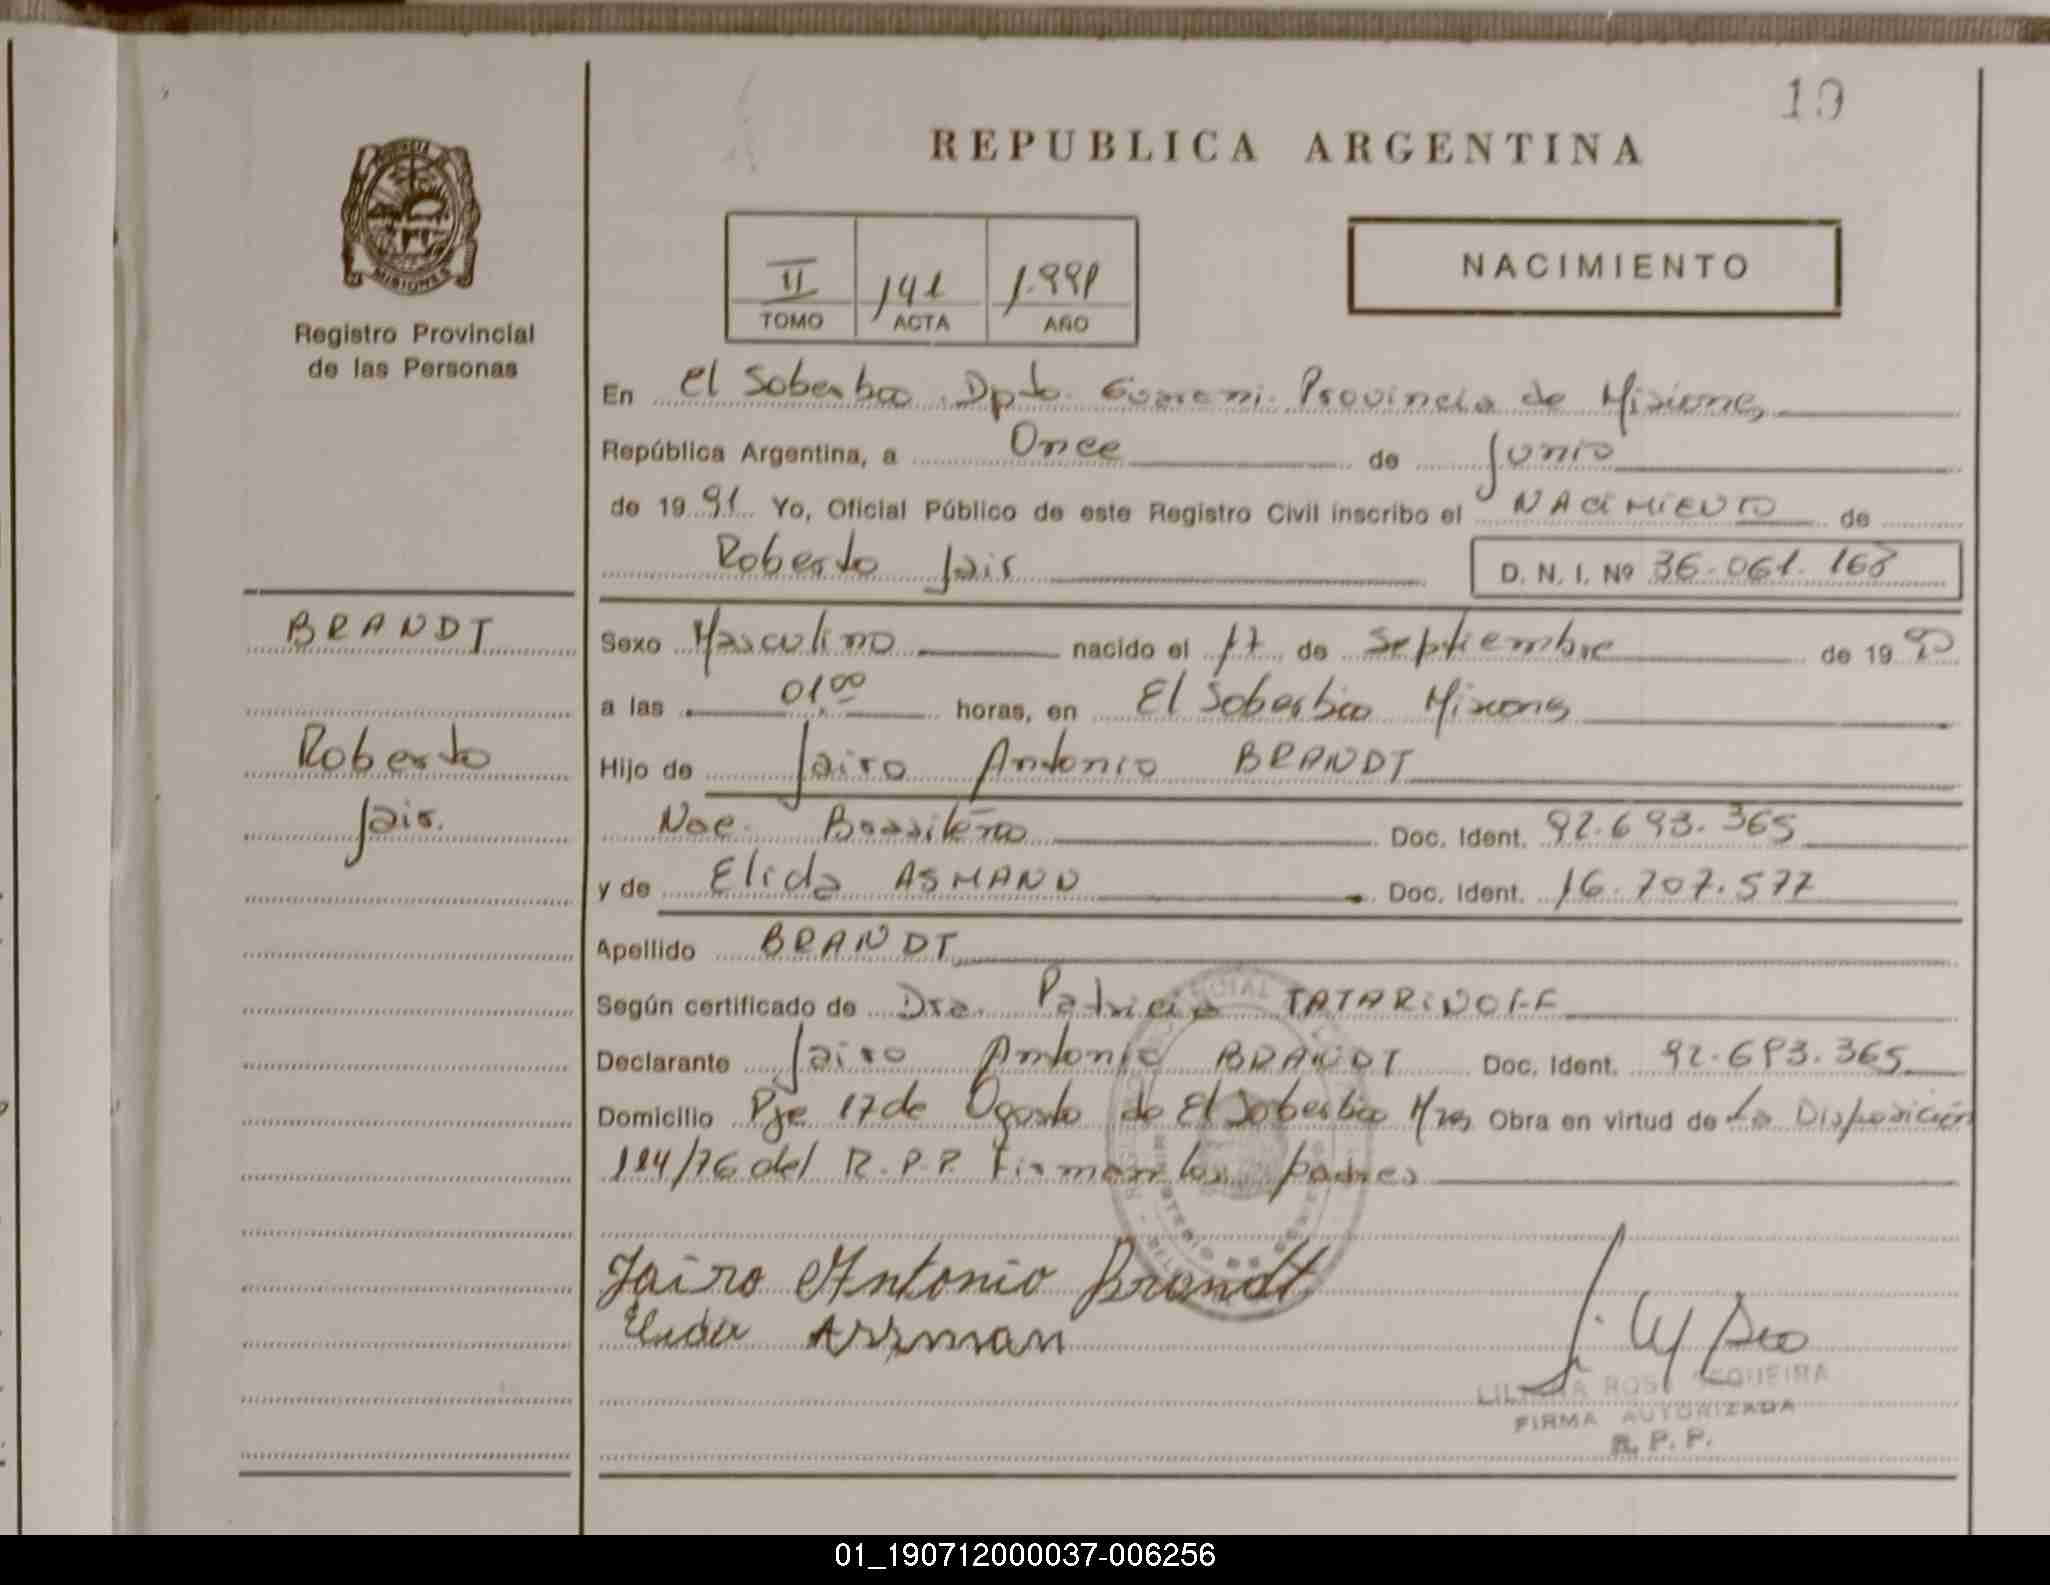 19
REPUBLICA ARGENTINA
MISIONES
Registro Provincial
de las Personas
II 141 1.991
TOMO ACTA AÑO
NACIMIENTO
En El Soberbio Dpto. Guarani. Provincia de Misiones
República Argentina, a Once de Junio
de 19 91 Yo, Oficial Público de este Registro Civil inscribo el NACIMIENTO de
Roberto Jair D. N. I. Nº 36.061.168
BRANDT
Sexo Masculino nacido el 17 de Septiembre de 19 90
a las 01,00 horas, en El Soberbio Misiones
Roberto
Hijo de Jairo Antonio BRANDT
Jair.
Nac. Brasileña Doc. Ident. 92.693.365
y de Elida ASMANN Doc. Ident. 16.707.577
Apellido BRANDT
Según certificado de Dra. Patricia TATARINOFF
Declarante Jairo Antonio BRANDT Doc. Ident. 92.693.365
Domicilio Pje 17 de Agosto de El Soberbio Mnes Obra en virtud de La Disposición
114/76 del R.P.P. Firman los padres
Jairo Antonio Brandt
Elida Assman
ROSA SEQUEIRA
FIRMA AUTORIZADA
R. P. P.
01_190712000037-006256